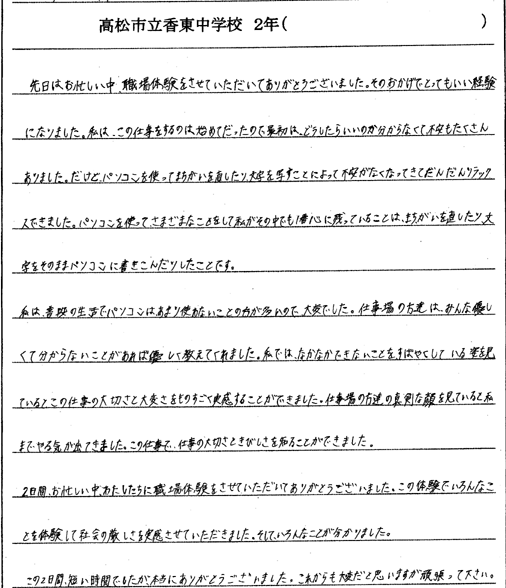 高松市立香東中学校 2年( )
先日はお忙しい中、職場体験をさせていただいてありがとうございました。そのおかげでとてもいい経験
になりました。私は、この仕事をするのは始めてだったので最初は、どうしたらいいのか分からなくて不安もたくさん
ありました。だけど、パソコンを使ってまちがいを直したり、文字を写すことによって不安がなくなってきてだんだんリラック
スできました。パソコンを使ってさまざまなことをして私がその中でも1番心に残っていることは、まちがいを直したり、文
字をそのままパソコンに書きこんだりしたことです。
私は、普段の生活でパソコンはあまり使わないことの方が多いので、大変でした。仕事場の方達は、みんな優し
くて分からないことがあれば優しく教えてくれました。私では、なかなかできないことをすばやくしている姿を見
ているとこの仕事の大切さと大変さをものすごく実感することができました。仕事場の方達の真剣な顔を見ていると私
までやる気が出てきました。この仕事で、仕事の大切さときびしさを知ることができました。
2日間、お忙しい中、わたしたちに職場体験をさせていただいてありがとうございました。この体験でいろんなこ
とを体験して社会の厳しさを実感させていただきました。そして、いろんなことが分かりました。
この2日間、短い時間でしたが、本当にありがとうございました。これからも大変だと思いますが頑張って下さい。